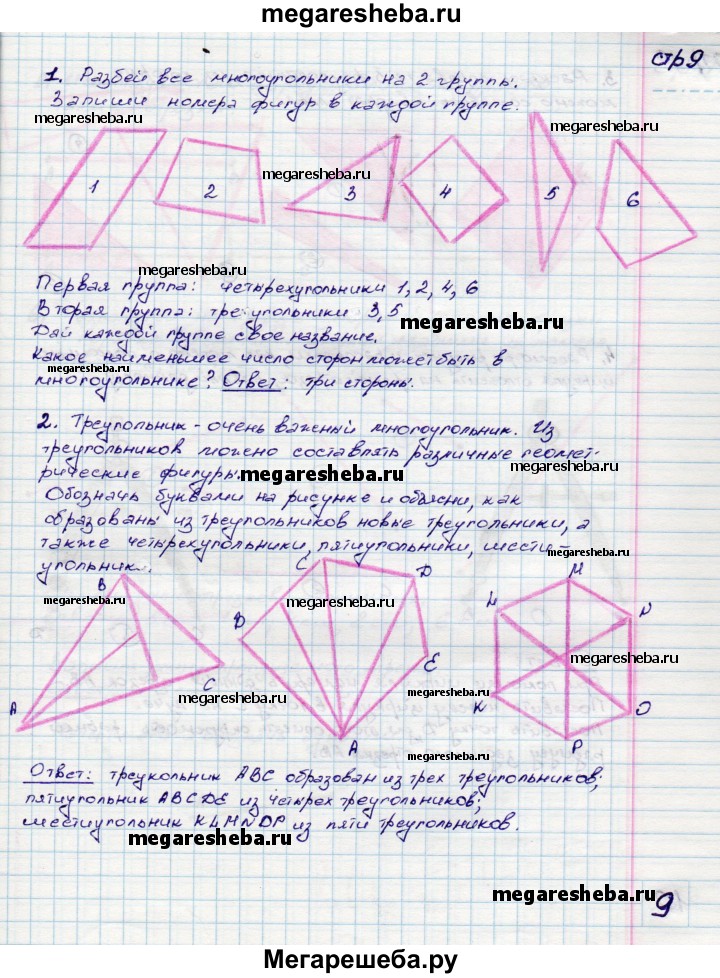 megaresheba.ru
стр9
1. Разбей все многоугольники на 2 группы.
Запиши номера фигур в каждой группе.
megaresheba.ru
megaresheba.ru
megaresheba.ru
1 2 3 4 5 6
megaresheba.ru
Первая группа: четырехугольники 1, 2, 4, 6
Вторая группа: треугольники 3, 5
megaresheba.ru
Дай каждой группе свое название.
Какое наименьшее число сторон может быть в
многоугольнике? Ответ: три стороны.
megaresheba.ru
2. Треугольник - очень важный многоугольник. Из
треугольников можно составлять различные геомет-
megaresheba.ru
рические фигуры.
megaresheba.ru
Обозначь буквами на рисунке и объясни, как
образованы из треугольников новые треугольники, а
также четырехугольники, пятиугольники, шести-
megaresheba.ru
угольник.
B C D M
megaresheba.ru
megaresheba.ru
L N
B
megaresheba.ru
C E
megaresheba.ru
megaresheba.ru
A K O
A P
Ответ: треукольник ABC образован из трех треугольников;
пятиугольник ABCDE из четырех треугольников;
шестиугольник KLMNOP из пяти треугольников.
megaresheba.ru
megaresheba.ru
9
Мегарешеба.ру